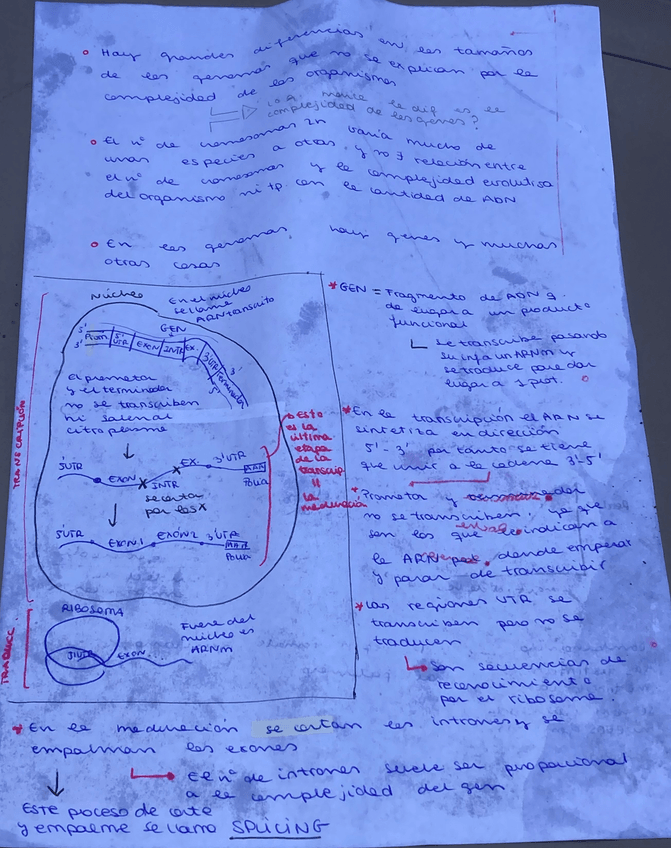 Hay grandes diferencias en los tamaños
de los genomas que no se explican por la
complejidad de los organismos
complejidad de los genes?
El nº de cromosomas 2n varía mucho de
unas especies a otras, y no ∃ relación entre
el nº de cromosomas y la complejidad evolutiva
del organismo ni tp con la cantidad de ADN
En los genomas hay genes y muchas
otras cosas
TRANSCRIPCIÓN
Núcleo
En el núcleo
se llama
ARN transcrito
GEN
5' 3'
Prom 5' UTR EXON INTR EX. 3'UTR Terminador
3' 5'
El promotor
y el terminador
no se transcriben
ni salen al
citoplasma
5'UTR EXON INTR EX. 3'UTR AAA
Polia
se cortan
por las X
5'UTR EXON.1 EXON 2 3'UTR AAA
Polia
Esto
es la
última
etapa
de la
transcrip.
la
maduración
TRADUCC.
RIBOSOMA
5'UTR EXON...
Fuera del
núcleo es
ARNm
* GEN = Fragmento de ADN q.
da lugar a un producto
funcional
se transcribe pasando
su info a un ARNm y
se traduce para dar
lugar a 1 prot.
* En la transcripción el ARN se
sintetiza en dirección
5'-3' por tanto se tiene
que unir a la cadena 3'-5'
* Promotor y
no se transcriben, ya que
son los que le indican a
la ARN donde empezar
y parar de transcribir
* Las regiones UTR se
transcriben pero no se
traducen
Son secuencias de
reconocimiento
por el ribosoma.
* En la maduración se cortan los intrones y se
empalman los exones
El nº de intrones suele ser proporcional
a la complejidad del gen
ESTE proceso de corte
y empalme se llama SPLICING